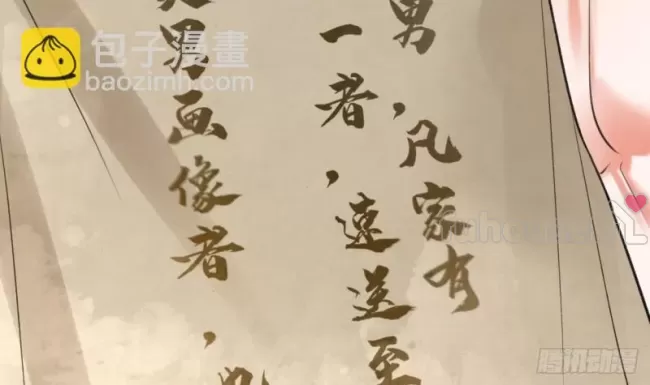 男，凡家有
一者，速送至
男画像者，
包子漫畫
baozimh.com
腾讯动漫